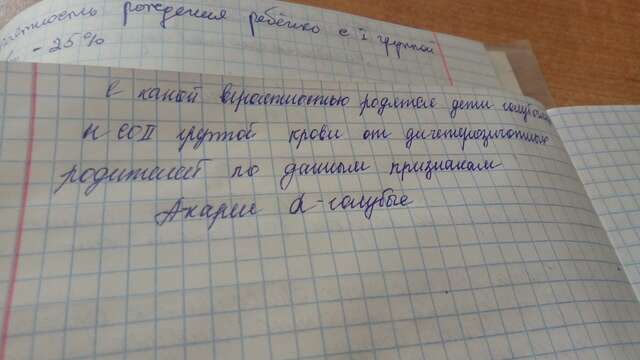 рождения ребёнка с I группой
- 25%
С какой вероятностью родятся дети
и со II группой крови от дигетерозиготных
родителей по данным признакам
А-карие а-голубые